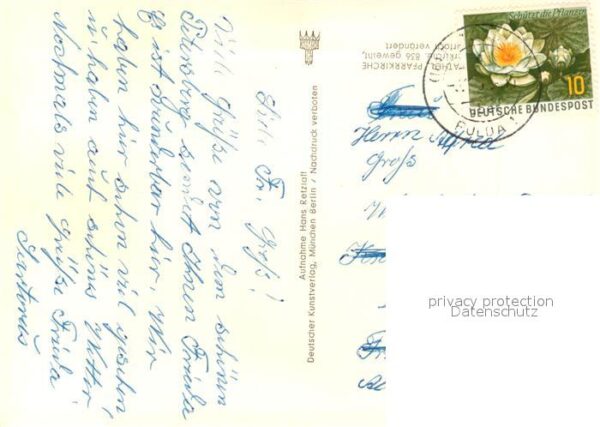 Lbr. Fr. Groß!
Viele Grüße von dem schönen
Petersberg sendet Ihnen Frieda
Es ist wunderbar hier. Wir
haben hier schon viel gesehen
u. haben auch schönes Wetter
Nochmals viele Grüße Frieda
Aufnahme Hans Retzlaff
Deutscher Kunstverlag, München Berlin / Nachdruck verboten
PFARRKIRCHE
836 geweiht,
verändert
Schützt die Pflanzen
10
DEUTSCHE BUNDESPOST
FULDA
Herrn Alfred
Groß
privacy protection
Datenschutz